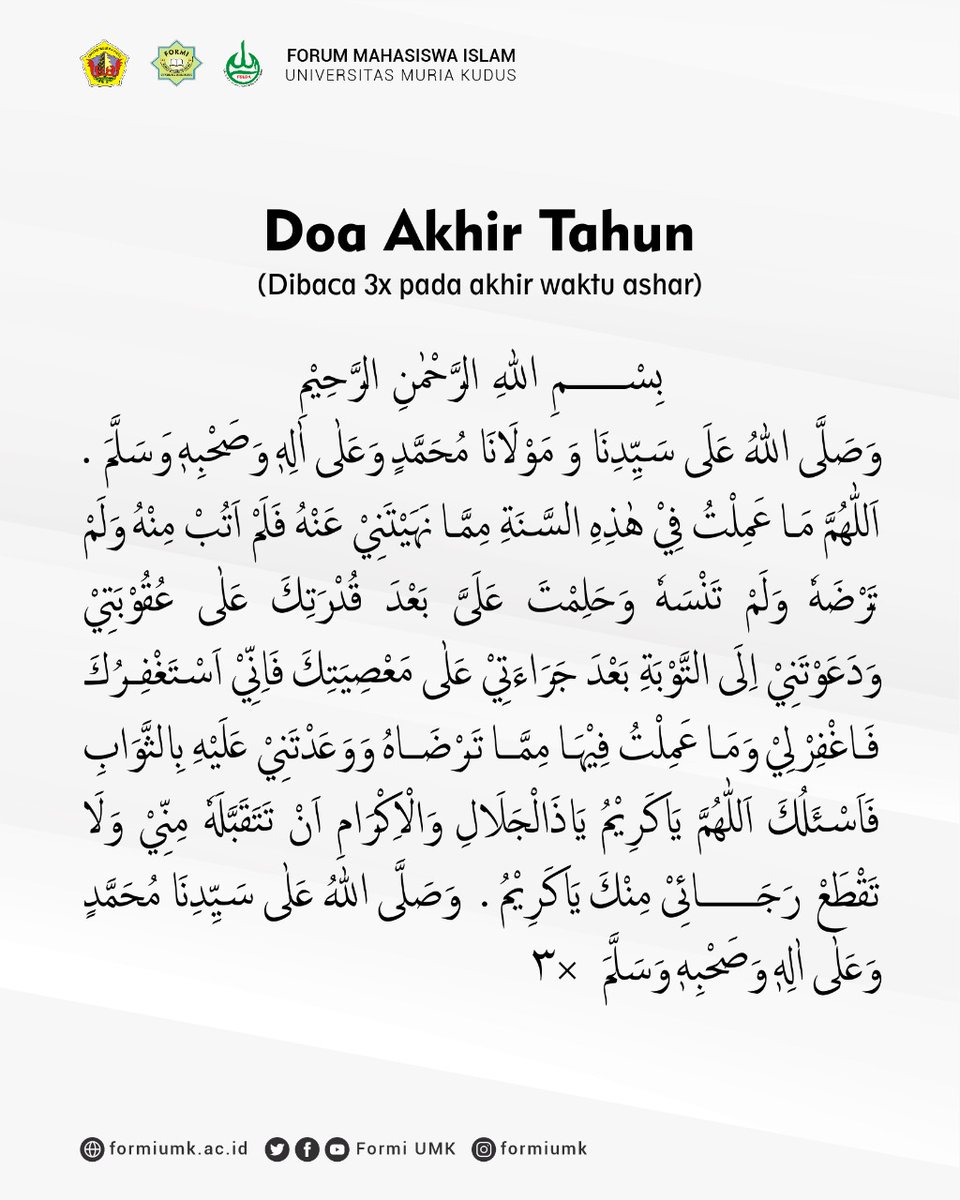 FORUM MAHASISWA ISLAM
UNIVERSITAS MURIA KUDUS
FORMI
Doa Akhir Tahun
(Dibaca 3x pada akhir waktu ashar)
بِسْــــــمِ اللهِ الرَّحْمٰنِ الرَّحِيْمِ
وَصَلَّى اللهُ عَلَى سَيِّدِنَا وَ مَوْلَانَا مُحَمَّدٍ وَعَلٰى اٰلِهٖ وَصَحْبِهٖ وَسَلَّمَ .
اَللّٰهُمَّ مَا عَمِلْتُ فِيْ هٰذِهِ السَّنَةِ مِمَّا نَهَيْتَنِيْ عَنْهُ فَلَمْ اَتُبْ مِنْهُ وَلَمْ
تَرْضَهٗ وَلَمْ تَنْسَهٗ وَحَلِمْتَ عَلَيَّ بَعْدَ قُدْرَتِكَ عَلٰى عُقُوْبَتِيْ
وَدَعَوْتَنِيْ اِلَى التَّوْبَةِ بَعْدَ جَرَاءَتِيْ عَلٰى مَعْصِيَتِكَ فَاِنِّيْ اَسْتَغْفِرُكَ
فَاغْفِرْلِيْ وَمَا عَمِلْتُ فِيْهَا مِمَّا تَرْضَاهُ وَوَعَدْتَنِيْ عَلَيْهِ بِالثَّوَابِ
فَاَسْئَلُكَ اَللّٰهُمَّ يَاكَرِيْمُ يَاذَالْجَلَالِ وَالْاِكْرَامِ اَنْ تَتَقَبَّلَهٗ مِنِّيْ وَلَا
تَقْطَعْ رَجَــــائِيْ مِنْكَ يَاكَرِيْمُ . وَصَلَّى اللهُ عَلٰى سَيِّدِنَا مُحَمَّدٍ
وَعَلٰى اٰلِهٖ وَصَحْبِهٖ وَسَلَّمَ ×٣
formiumk.ac.id Formi UMK formiumk